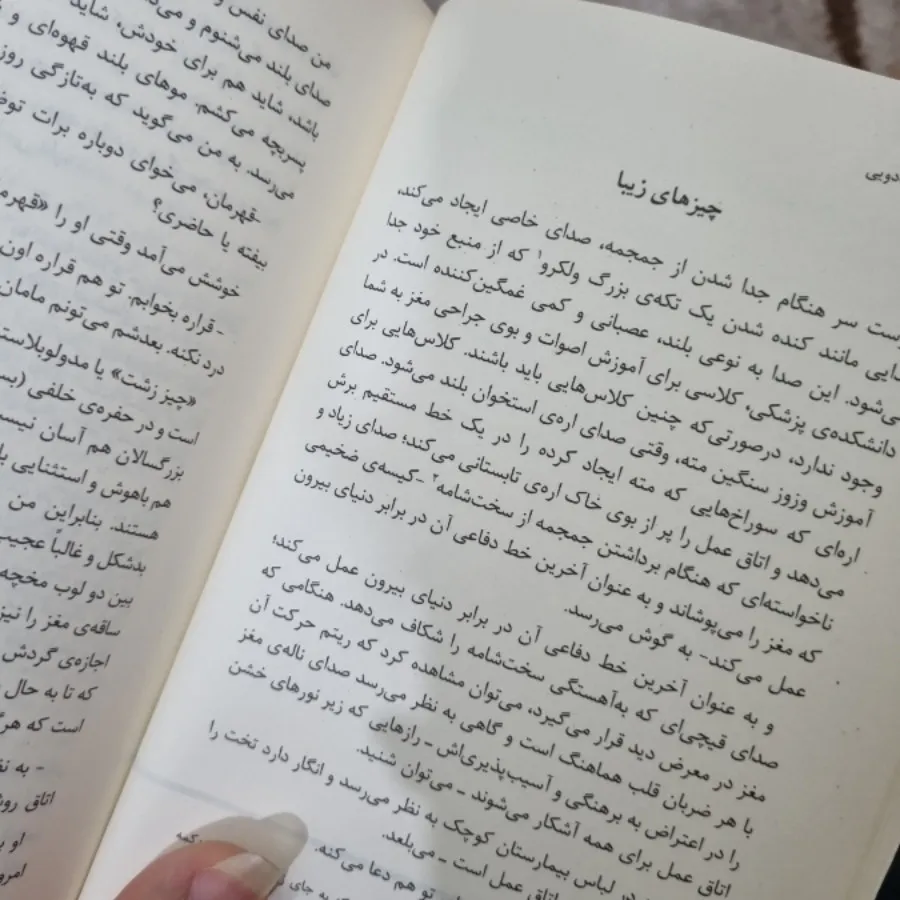 دویی
چیزهای زیبا
ست سر هنگام جدا شدن از جمجمه، صدای خاصی ایجاد می‌کند،
دایی مانند کنده شدن یک تکه‌ی بزرگ ولکرو۱ که از منبع خود جدا
می‌شود. این صدا به نوعی بلند، عصبانی و کمی غمگین‌کننده است. در
دانشکده‌ی پزشکی، کلاسی برای آموزش اصوات و بوی جراحی مغز به شما
وجود ندارد، درصورتی‌که چنین کلاس‌هایی باید باشند. کلاس‌هایی برای
آموزش وزوز سنگین مته، وقتی صدای اره‌ی استخوان بلند می‌شود. صدای
اره‌ای که سوراخ‌هایی که مته ایجاد کرده را در یک خط مستقیم برش
می‌دهد و اتاق عمل را پر از بوی خاک اره‌ی تابستانی می‌کند؛ صدای زیاد و
ناخواسته‌ای که هنگام برداشتن جمجمه از سخت‌شامه۲ -کیسه‌ی ضخیمی
که مغز را می‌پوشاند و به عنوان آخرین خط دفاعی آن در برابر دنیای بیرون
عمل می‌کند- به گوش می‌رسد.
و به عنوان آخرین خط دفاعی آن در برابر دنیای بیرون عمل می‌کند؛
صدای قیچی‌ای که به‌آهستگی سخت‌شامه را شکاف می‌دهد. هنگامی که
مغز در معرض دید قرار می‌گیرد، می‌توان مشاهده کرد که ریتم حرکت آن
با هر ضربان قلب هماهنگ است و گاهی به نظر می‌رسد صدای ناله‌ی مغز
را در اعتراض به برهنگی و آسیب‌پذیری‌اش - رازهایی که زیر نورهای خشن
اتاق عمل برای همه آشکار می‌شوند - می‌توان شنید.
در لباس بیمارستان کوچک به نظر می‌رسد و انگار دارد تخت را
اتاق عمل است - می‌بلعد.
تو هم دعا می‌کنه.
به جای
من صدای نفس و
صدای بلند می‌شنوم و
باشد، شاید هم برای خودش، شاید
پسربچه می‌کشم. موهای بلند قهوه‌ای و
می‌رسد. به من می‌گوید که به‌تازگی روز
-قهرمان، می‌خوای دوباره برات
بیفته یا حاضری؟
خوشش می‌آمد وقتی او را
- قراره بخوابم. تو هم قراره اون
درد نکنه. بعدشم می‌تونم مامان
«چیز زشت» یا
است و در حفره‌ی خلفی
بزرگسالان هم آسان
هم باهوش و استثنایی
هستند. بنابراین من
بدشکل و غالباً عجیب
بین دو لوب مخچه
ساقه‌ی مغز را نیز
اجازه‌ی گردش
که تا به حال
است که
- به
اتاق
او